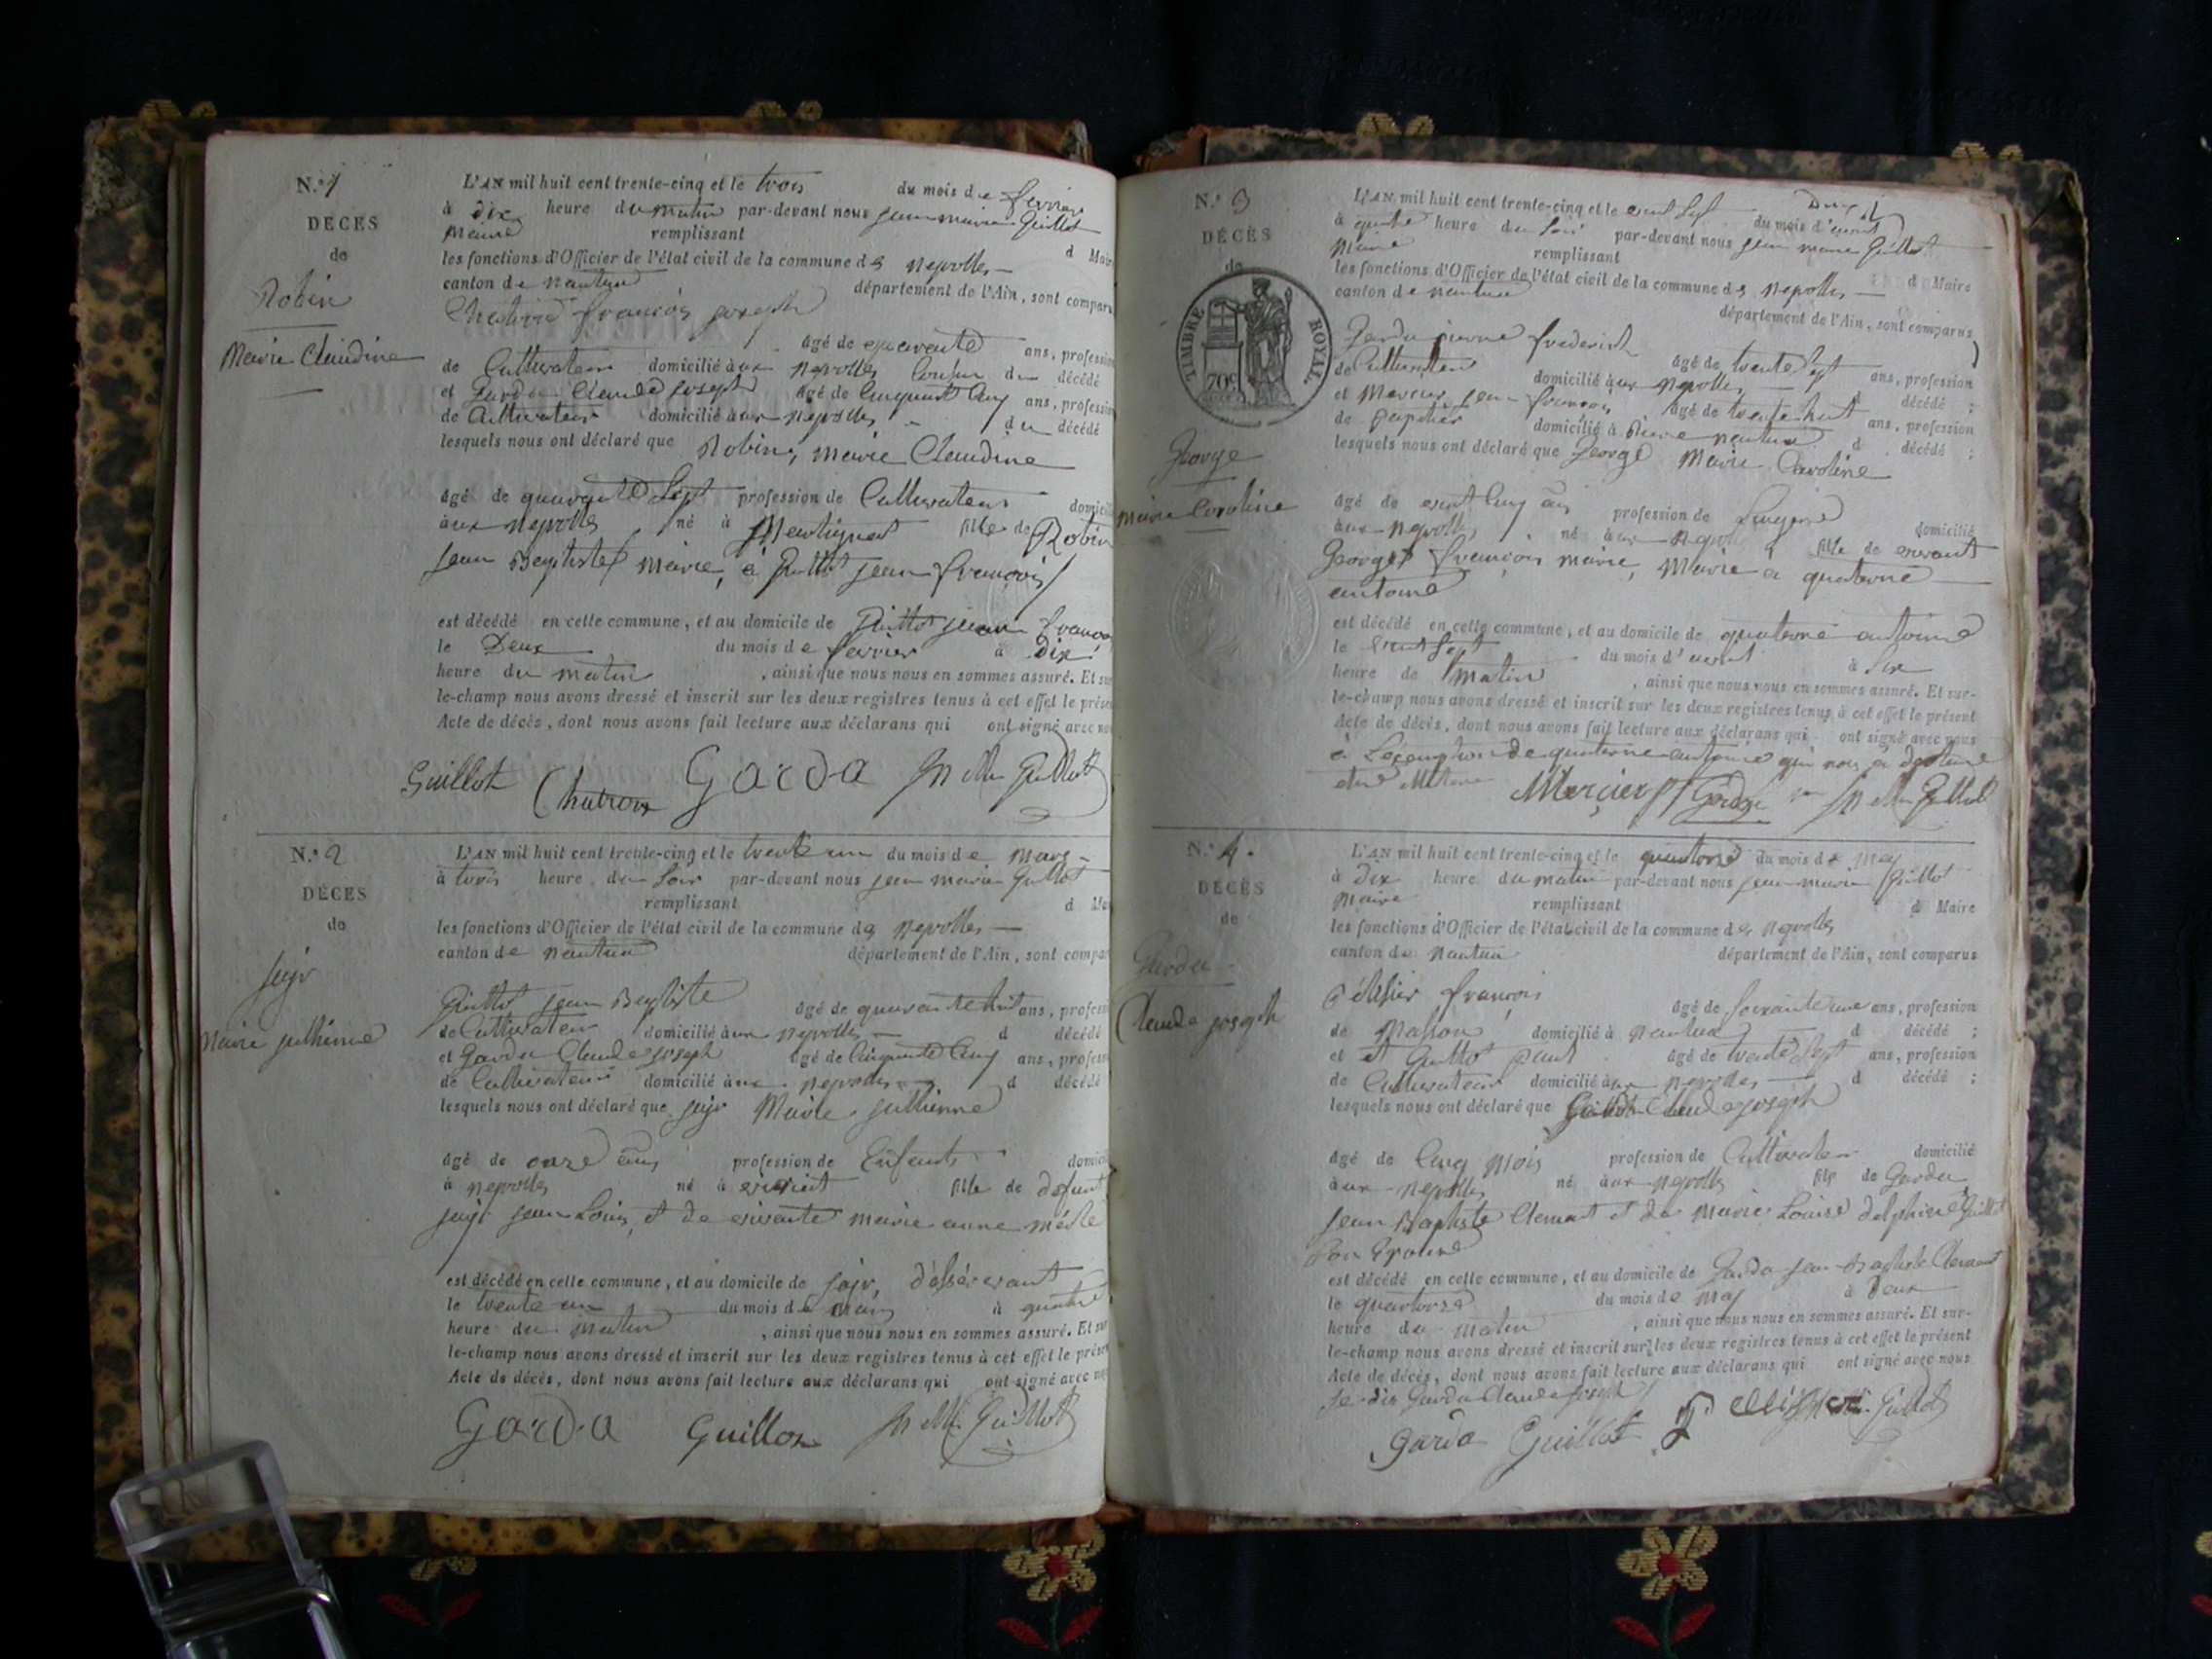 N.º 1
DÉCÈS
de
Robin
Marie Claudine
L'AN mil huit cent trente-cinq et le trois du mois de fevrier
à dix heure du matin par-devant nous jean marie Guillot
Maire remplissant d Maire
les fonctions d'Officier de l'état civil de la commune des neyrolles
canton de nantua département de l'Ain, sont comparus
françois joseph
âgé de quarante ans, profession
de Cultivateur domicilié aux neyrolles cousin du décédé
et Garda Claude joseph âgé de Cinquante Cinq ans, profession
de Cultivateur domicilié aux neyrolles du décédé
lesquels nous ont déclaré que Robin, marie Claudine
âgé de quarante Sept profession de Cultivateur
aux neyrolles né à Martignat fille de Robin
jean Baptiste, mariée à Guillot jean françois
est décédé en cette commune, et au domicile de Guillot jean françois
le Deux du mois de fevrier à Dix
heure du matin, ainsi que nous nous en sommes assuré. Et sur
le-champ nous avons dressé et inscrit sur les deux registres tenus à cet effet le présent
Acte de décès, dont nous avons fait lecture aux déclarans qui ont signé avec nous
Guillot Garda JN Mie Guillot
N.º 2
DÉCÈS
de
Marie jullienne
L'AN mil huit cent trente-cinq et le trente un du mois de Mars
à trois heure du Soir par-devant nous jean marie Guillot
remplissant d
les fonctions d'Officier de l'état civil de la commune des neyrolles
canton de nantua département de l'Ain, sont comparus
Guillot jean Baptiste âgé de quarante huit ans, profession
de Cultivateur domicilié aux neyrolles d décédé
et Garda Claude joseph âgé de Cinquante Cinq ans, profession
de Cultivateur domicilié aux neyrolles d décédé
lesquels nous ont déclaré que Marie jullienne
âgé de onze ans profession de Enfant
à neyrolles né à fille de defunt
jean Louis, et de vivante marie anne
est décédé en cette commune, et au domicile de
le trente un du mois de Mars à quatre
heure du matin, ainsi que nous nous en sommes assuré. Et sur
le-champ nous avons dressé et inscrit sur les deux registres tenus à cet effet le présent
Acte de décès, dont nous avons fait lecture aux déclarans qui ont signé avec nous
Garda Guillot JN Mie Guillot
N.º 3
DÉCÈS
de
TIMBRE ROYAL
70c
George
marie Caroline
L'AN mil huit cent trente-cinq et le vint Sept du mois d'avril
à quatre heure du Soir par-devant nous jean marie Guillot
Maire remplissant d Maire
les fonctions d'Officier de l'état civil de la commune des neyrolles
canton de nantua département de l'Ain, sont comparus
Garda pierre frederich
de Cultivateur âgé de trente Sept ans, profession
domicilié aux neyrolles d décédé ;
et Mercier jean françois âgé de trente huit ans, profession
de papetier domicilié à nantua d décédé ;
lesquels nous ont déclaré que George Marie Caroline
âgé de vint Cinq ans profession de Lingere domicilié
aux neyrolles né aux neyrolles fille de vivant
George françois marie, Mariée a quaterne
antoine
est décédé en cette commune, et au domicile de quaterne antoine
le vint Sept du mois d'avril à Six
heure de matin, ainsi que nous nous en sommes assuré. Et sur-
le-champ nous avons dressé et inscrit sur les deux registres tenus à cet effet le présent
Acte de décès, dont nous avons fait lecture aux déclarans qui ont signé avec nous
à L'exception de quaterne antoine qui nous a déclaré
Mercier Garda JN Mie Guillot
N.º 4.
DÉCÈS
de
Garda
Claude joseph
L'AN mil huit cent trente-cinq et le quatorze du mois de May
à Dix heure du matin par-devant nous jean marie Guillot
Maire remplissant d Maire
les fonctions d'Officier de l'état civil de la commune des neyrolles
canton de nantua département de l'Ain, sont comparus
Pélissier françois âgé de Soixante une ans, profession
de Masson domicilié à nantua d décédé ;
et et Guillot paul âgé de trente Sept ans, profession
de Cultivateur domicilié aux neyrolles d décédé ;
lesquels nous ont déclaré que Claude joseph
âgé de Cinq Mois profession de Cultivateur domicilié
aux neyrolles né aux neyrolles fils de Garda
jean Baptiste Clemant et de Marie Louise delphine Guillot
Son Epouse
est décédé en cette commune, et au domicile de Garda jean Baptiste Clemant
le quatorze du mois de May à Deux
heure du matin, ainsi que nous nous en sommes assuré. Et sur-
le-champ nous avons dressé et inscrit sur les deux registres tenus à cet effet le présent
Acte de décès, dont nous avons fait lecture aux déclarans qui ont signé avec nous
Je dis Garda Claude joseph
Garda Guillot Pellissier JN Mie Guillot